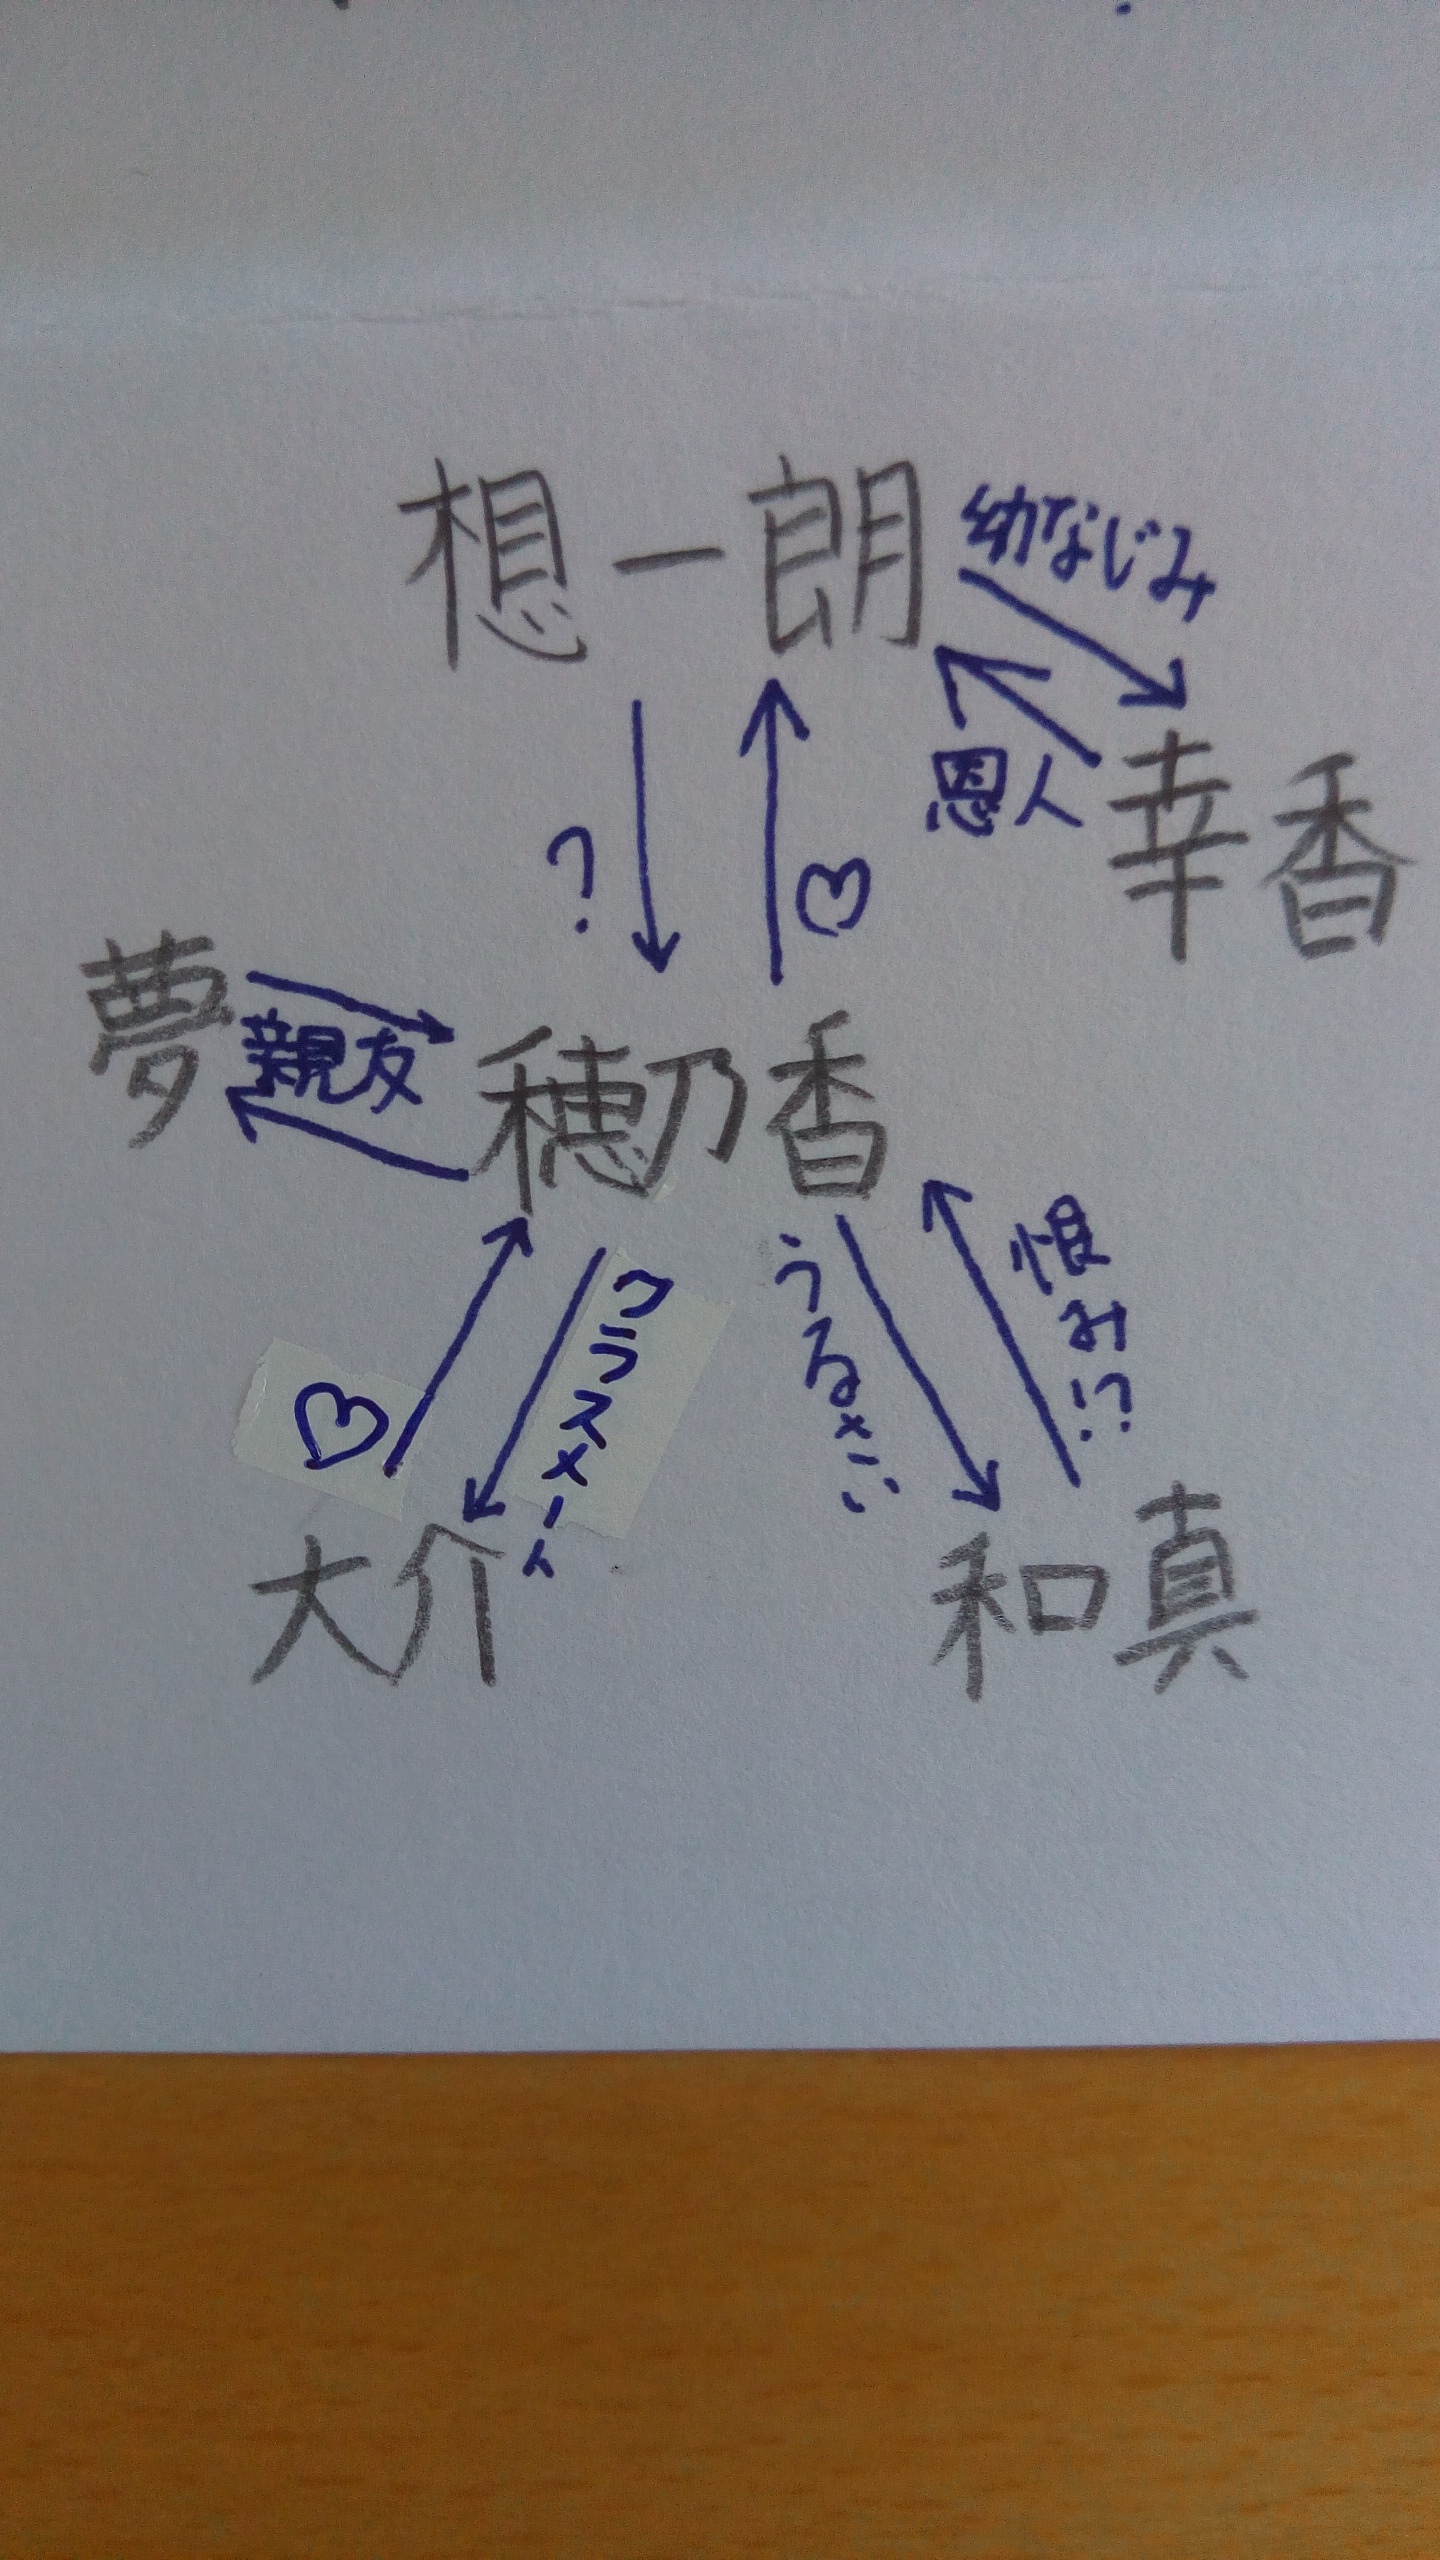 想一朗
幼なじみ
恩人
幸香
?
♡
夢
親友
穂乃香
♡
クラスメート
恨み!?
大介
和真